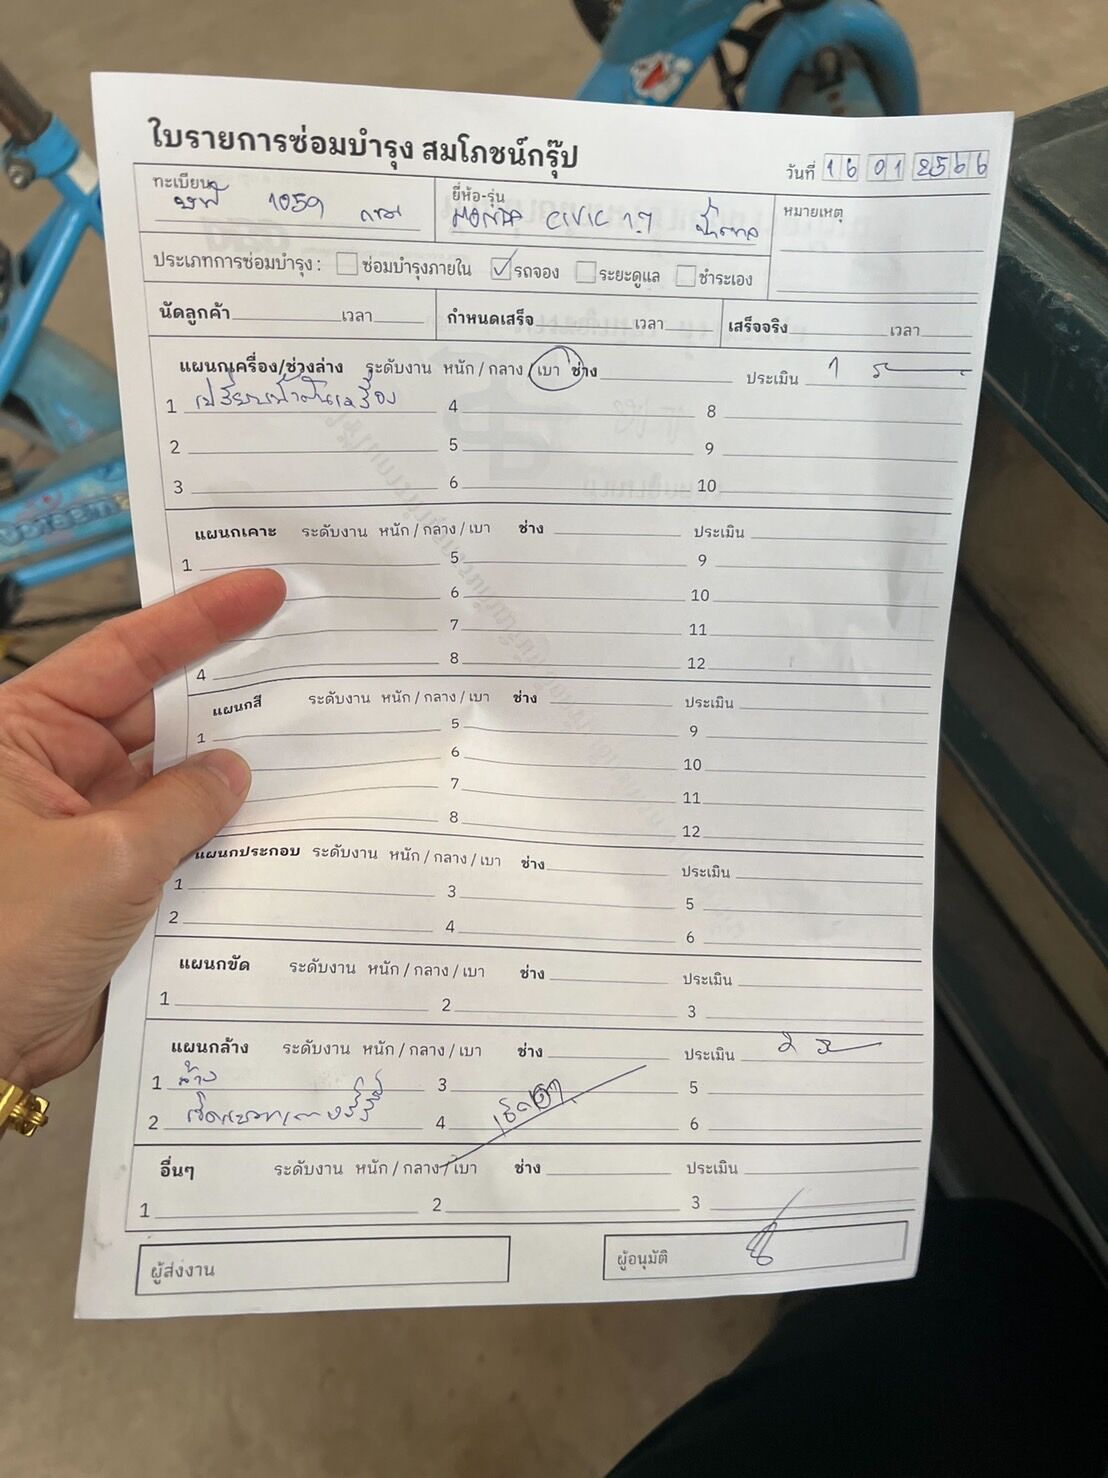 ใบรายการซ่อมบำรุง สมโภชน์กรุ๊ป
วันที่ 16 01 2566
ทะเบียน 1059 กทม
ยี่ห้อ-รุ่น HONDA CIVIC 1.7 น้ำตาล
หมายเหตุ
ประเภทการซ่อมบำรุง : ซ่อมบำรุงภายใน ✓ รถจอง ระยะดูแล ชำระเอง
นัดลูกค้า เวลา กำหนดเสร็จ เวลา เสร็จจริง เวลา
แผนกเครื่อง/ช่วงล่าง ระดับงาน หนัก / กลาง / เบา ช่าง ประเมิน 1
1 เปลี่ยนน้ำมันเครื่อง 4 8
2 5 9
3 6 10
แผนกเคาะ ระดับงาน หนัก / กลาง / เบา ช่าง ประเมิน
1 5 9
6 10
7 11
4 8 12
แผนกสี ระดับงาน หนัก / กลาง / เบา ช่าง ประเมิน
1 5 9
6 10
7 11
8 12
แผนกประกอบ ระดับงาน หนัก / กลาง / เบา ช่าง ประเมิน
1 3 5
2 4 6
แผนกขัด ระดับงาน หนัก / กลาง / เบา ช่าง ประเมิน
1 2 3
แผนกล้าง ระดับงาน หนัก / กลาง / เบา ช่าง ประเมิน 2
1 ล้าง 3 5
2 4 6
อื่นๆ ระดับงาน หนัก / กลาง / เบา ช่าง ประเมิน
1 2 3
ผู้ส่งงาน ผู้อนุมัติ